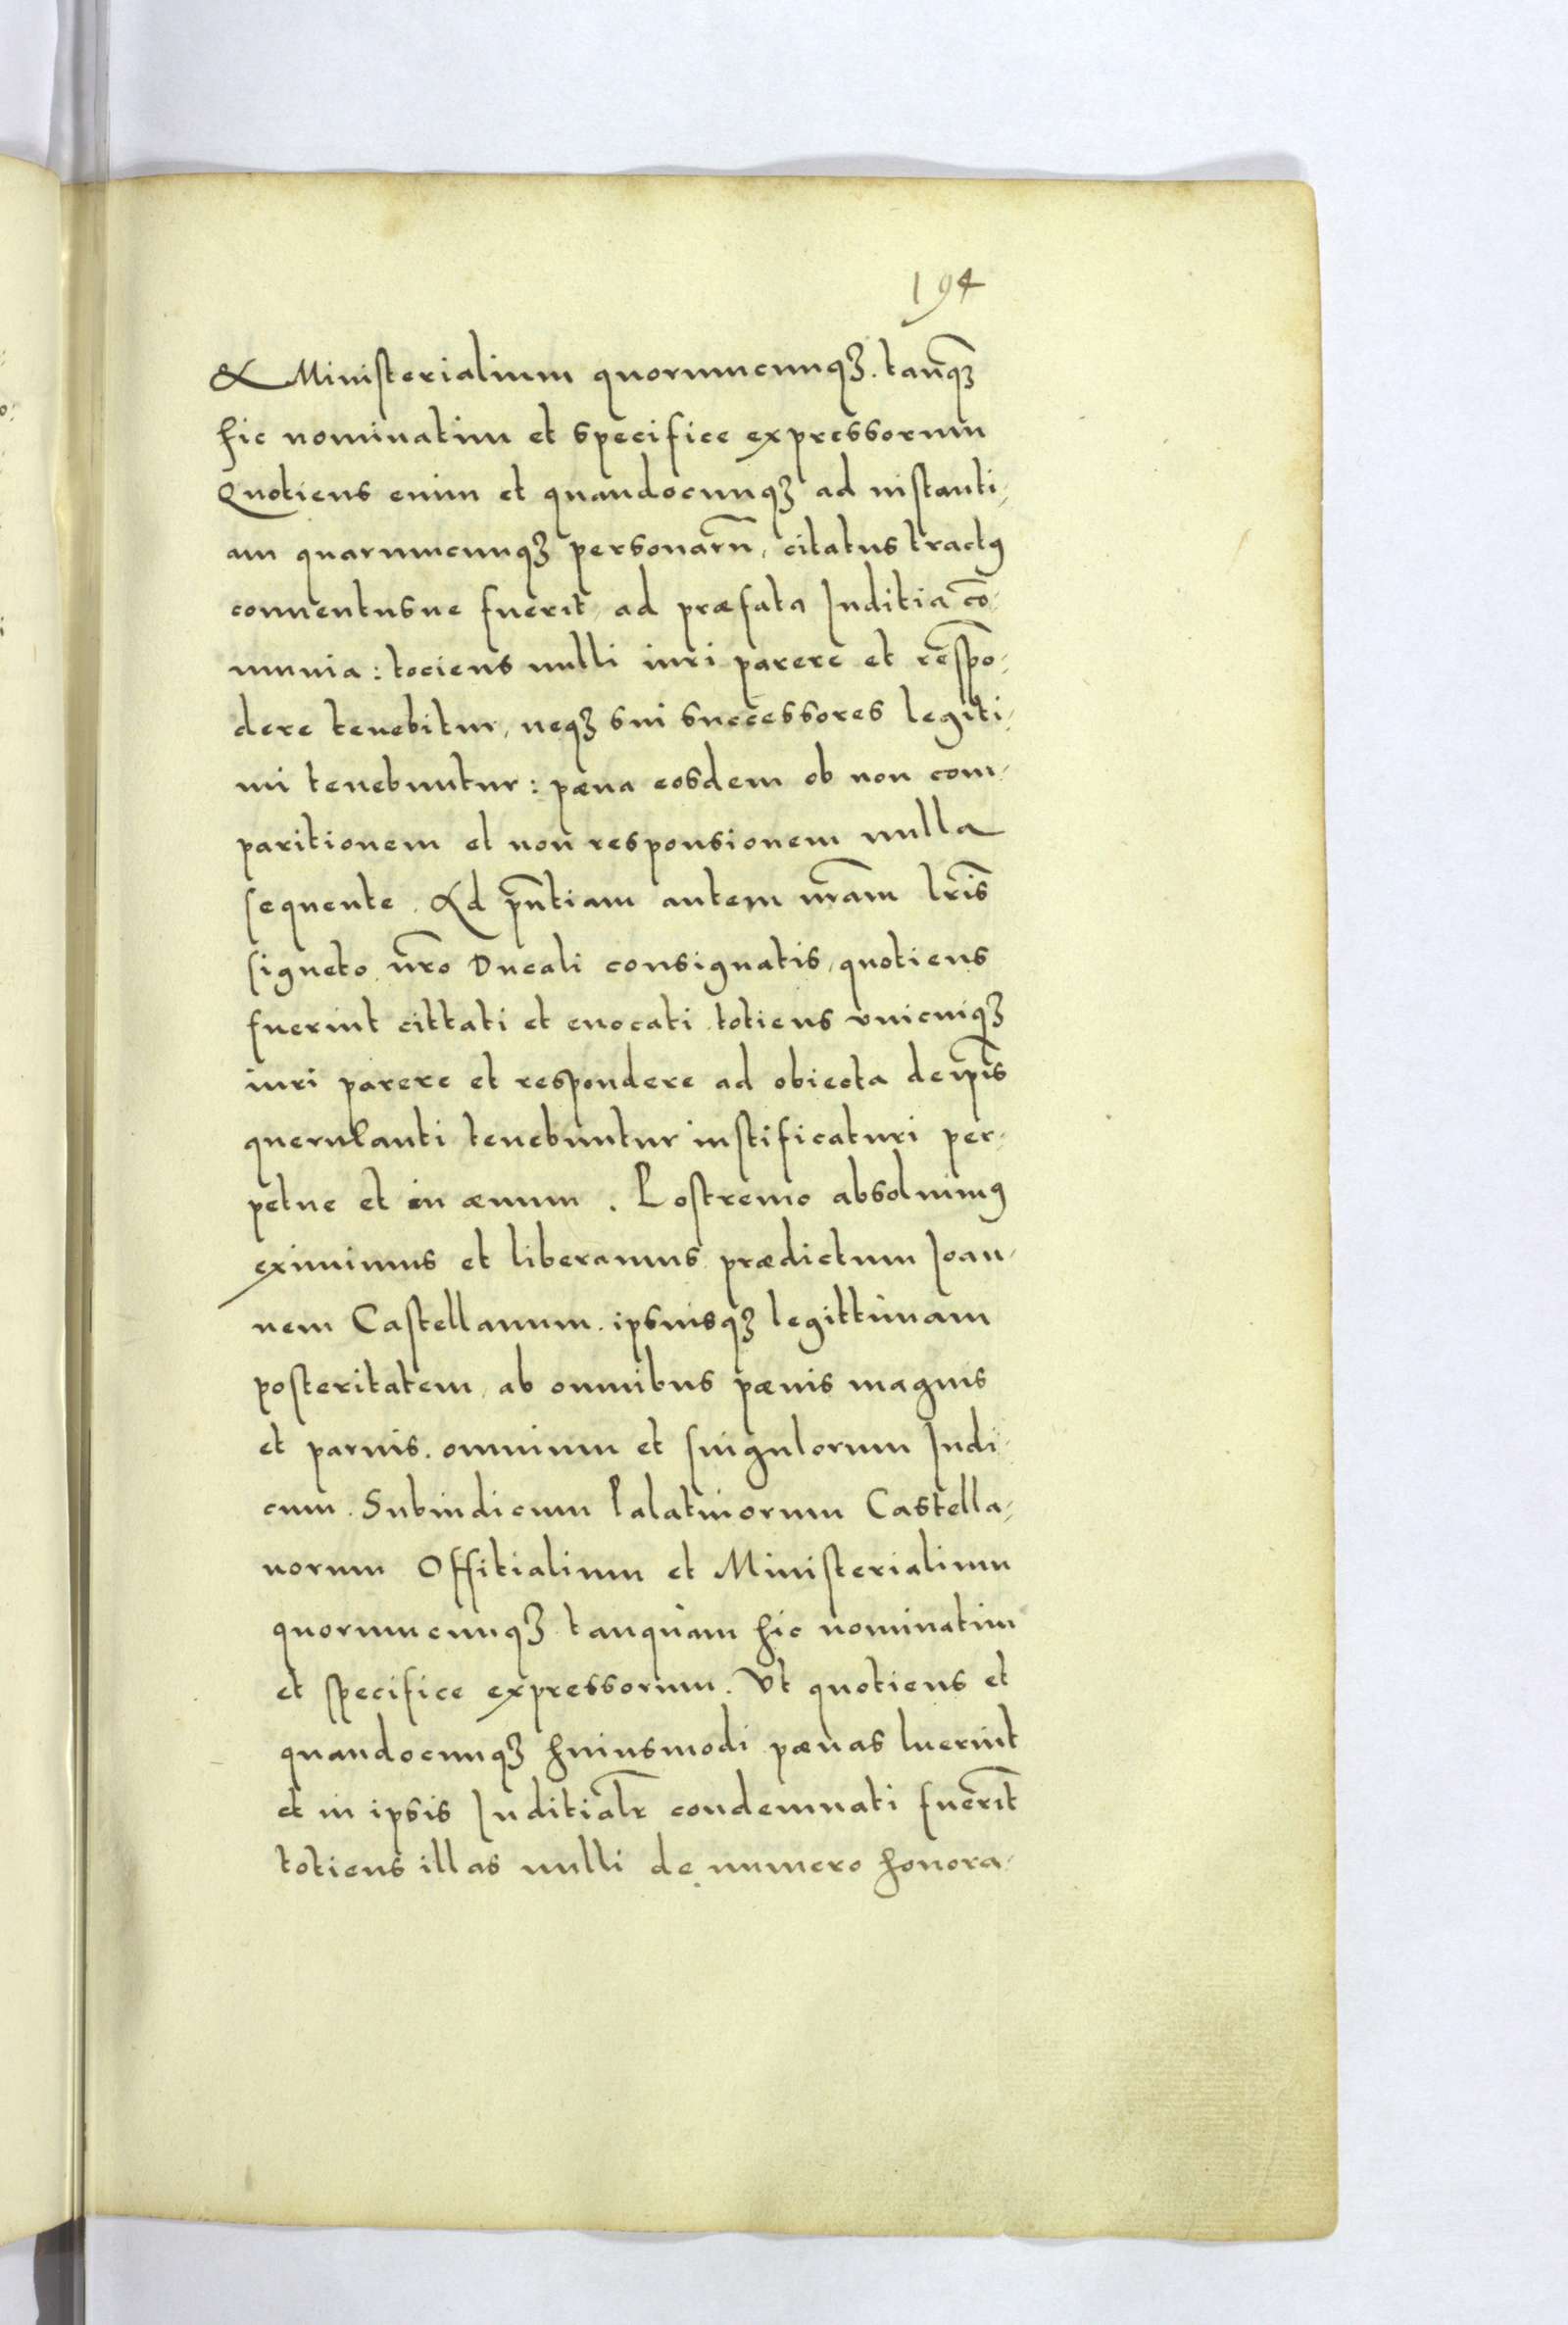 194
& Ministerialium quorumcunqꝫ. tanqꝫ̃
hic nominatim et specifice expressorum
Quotiens enim et quandocunqꝫ ad instanti,
am quarumcunqꝫ personarũ, citatus tractꝯ
conuentusue fuerit, ad præfata Juditia cõ,
munia: tociens nulli iuri parere et respõ,
dere tenebitur, neqꝫ sui successores legiti,
mi tenebuntur: pæna eosdem ob non com,
paritionem et non responsionem nulla
sequente. Ad pñtiam autem nr̃am lr̃is
signeto nr̃o Ducali consignatis, quotiens
fuerint cittati et euocati totiens vnicuiqꝫ
iuri parere et respondere ad obiecta de ip̃is
querulanti tenebuntur iustificaturi per,
petue et in æuum. Postremo absoluimꝯ
eximimus et liberamus prædictum Joan,
nem Castellanum. ipsuisqꝫ legittimam
posteritatem, ab omnibus pænis magnis
et paruis. omnium et singulorum Judi,
cum. Subiudicum Palatinorum Castella,
norum Offitialium et Ministerialium
quorumcunqꝫ tanquam hic nominatim
et specifice expressorum. Vt quotiens et
quandocunqꝫ huiusmodi pænas luerint
et in ipsis Juditialr̃ condemnati fuerĩt
totiens illas nulli de numero honora,